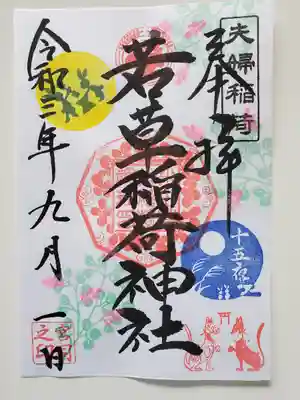 夫婦稲荷
奉拝
若草稲荷神社
令和三年九月一日
十五夜
宮司之印